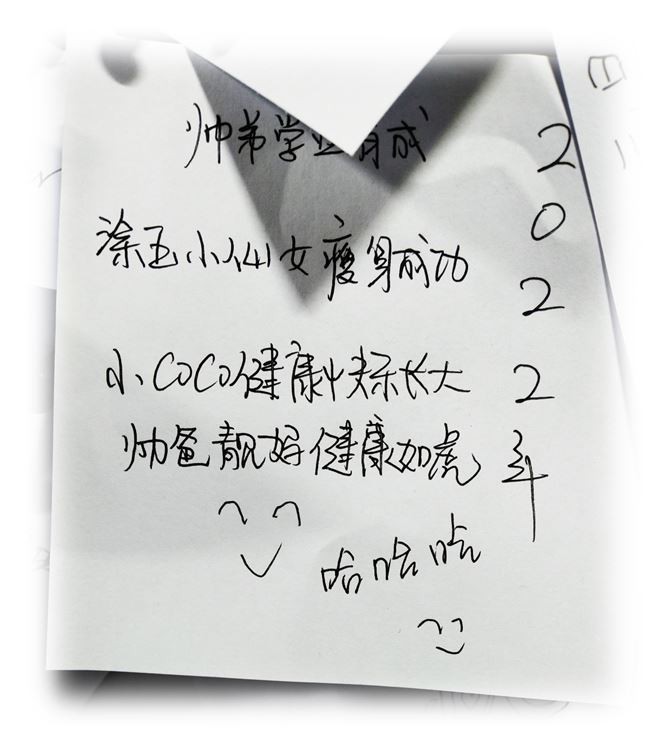 帅弟学业有成
涂玉小仙女瘦身成功
小coco健康快乐长大
帅爸靓妈健康如虎
哈哈哈
2022年